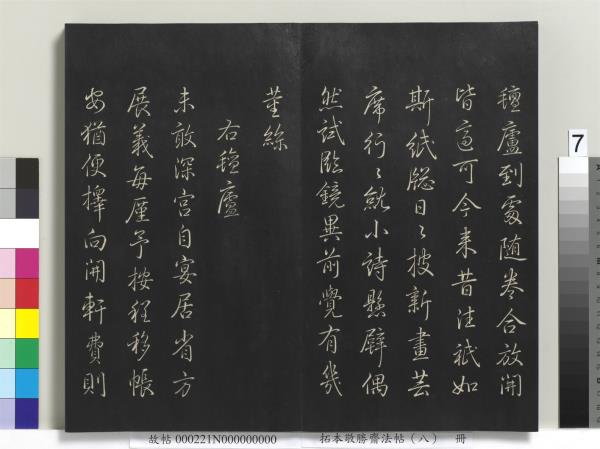 氊廬到處随卷合放開
皆高可今来昔法祇如
斯紙牕日〻披新畫芸
席行〻就小詩懸壁偶
然試臨鏡異前覺有幾
莖絲
右氊廬
未敢深宮自宴居省方
展義每廑予按程移帳
安猶便擇向開軒費則
7
故帖 000221N000000000 拓本敬勝齋法帖（八） 冊